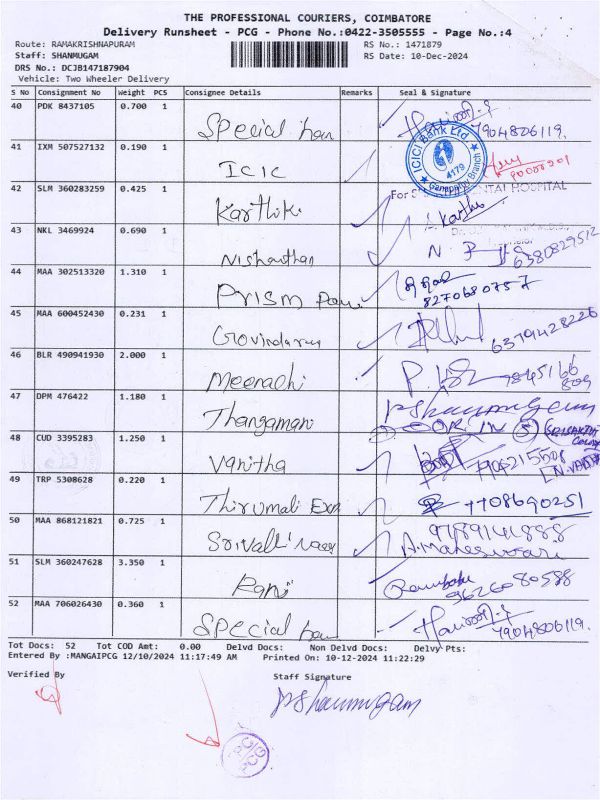 THE PROFESSIONAL COURIERS, COIMBATORE
Delivery Runsheet - PCG - Phone No.:0422-3505555 - Page No.:4
Route: RAMAKRISHNAPURAM RS No.: 1471879
Staff: SHANMUGAM RS Date: 10-Dec-2024
DRS No.: DCJB147187904
Vehicle: Two Wheeler Delivery
S No Consignment No Weight PCS Consignee Details Remarks Seal & Signature
40 PDK 8437105 0.700 1
Special 7904806119.
41 IXM 507527132 0.190 1 ICICI Bank Ltd
ICIC 4179 Ganapathy Branch
42 SLM 360283259 0.425 1 For DENTAL HOSPITAL
Karthik Karthi
43 NKL 3469924 0.690 1
Nishanthan N 6380829512
44 MAA 302513320 1.310 1
Prism 8270680757
45 MAA 600452430 0.231 1
Govindaraj 6379428226
46 BLR 490941930 2.000 1
Meenachi P. 7845166 809
47 DPM 476422 1.180 1 pshanmugam
Thangamani DOOR IN S
48 CUD 3395283 1.250 1
Vanitha
49 TRP 5308628 0.220 1
Thirumali 7708690251
50 MAA 868121821 0.725 1 9789141888
Srivalli A.Maheswari
51 SLM 360247628 3.350 1
Rani Rambabu
52 MAA 706026430 0.360 1
Special 7904806119.
Tot Docs: 52 Tot COD Amt: 0.00 Delvd Docs: Non Delvd Docs: Delvy Pts:
Entered By :MANGAIPCG 12/10/2024 11:17:49 AM Printed On: 10-12-2024 11:22:29
Verified By Staff Signature
pshanmugam